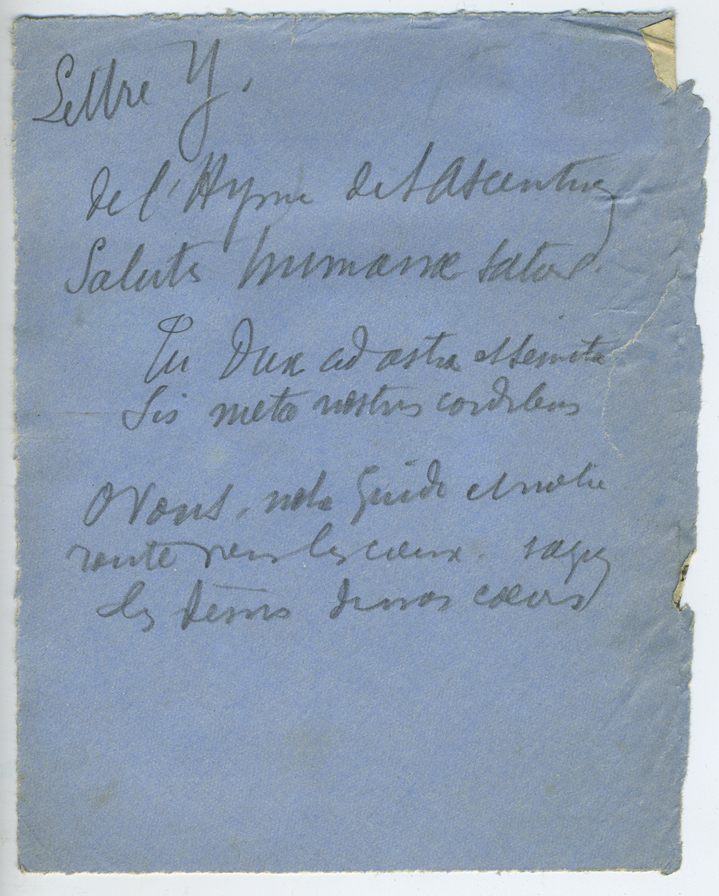 Lettre Y.
de l'Hymne de l'Ascention
Salutis humanae sator.
Tu Dux ad astra et semita
Sis meta nostris cordibus
O Vous, notre Guide et notre
route vers les cieux. soyez
les désirs de nos coeurs